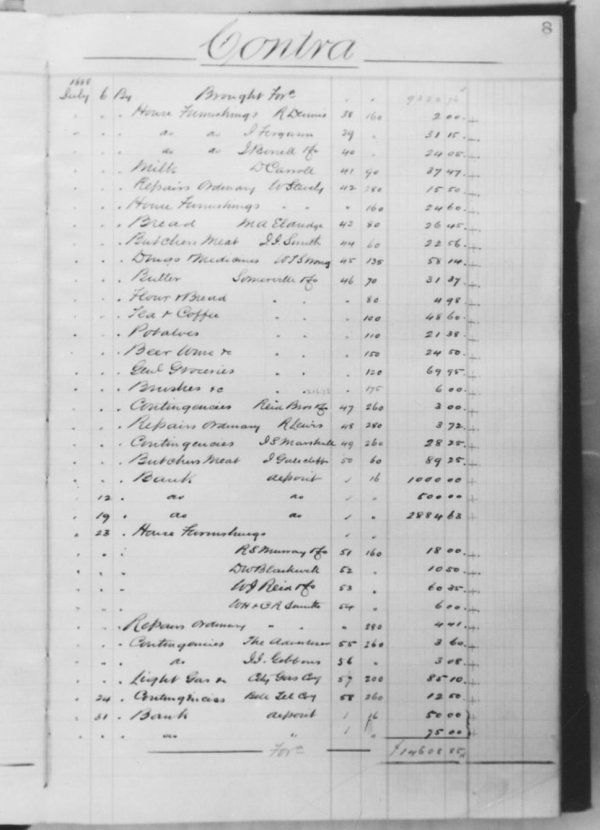 8
Contra
1888
July 6 By Brought For^d
" " " House Furnishings R Dennis 38 160 2 00
" " " do do J Ferguson 39 " 31 15
" " " do do 40 " 24 05
" " " Milk D Carroll 41 90 37 47
" " " Repairs Ordinary 42 280 15 50
" " " House Furnishings " " " 160 24 60
" " " Bread M A Eldridge 43 80 26 45
" " " Butchers Meat J J Smith 44 60 22 56
" " " Drugs Medicines W J Strong 45 135 58 14
" " " Butter Somerville & Co 46 70 31 37
" " " Flour & Bread " " " 80 4 98
" " " Tea & Coffee " " " 100 48 60
" " " Potatoes " " " 110 21 38
" " " Beer Wine &c " " " 150 24 50
" " " Genl Groceries " " " 120 69 95
" " " Brushes &c " " " 175 6 00
" " " Contingencies Reid Bros & Co 47 260 3 00
" " " Repairs Ordinary R Lewis 48 280 3 72
" " " Contingencies J S Marshall 49 260 28 25
" " " Butchers Meat 50 60 89 25
" " " Bank deposit " 16 1000 00
" 12 " do do " " 500 00
" 19 " do do " " 2884 63
" 23 " House Furnishings " "
" " " R S Murray & Co 51 160 18 00
" " " D W Blackwell 52 " 10 50
" " " W J Reid & Co 53 " 60 35
" " " W H & C R Smith 54 " 6 00
" " " Repairs Ordinary " " " 280 4 41
" " " Contingencies The Advertiser 55 260 3 60
" " " do J J Gibbons 56 " 3 08
" " " Light Gas &c City Gas Coy 57 200 85 10
" 24 " Contingencies Bell Tel Coy 58 260 12 50
" 31 " Bank deposit " 16 50 00
" " " do " " " 75 00
For^d 14608 85